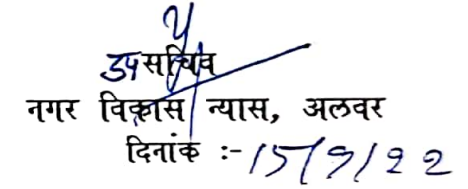 उप सचिव
नगर विकास न्यास, अलवर
दिनांक :- 15/9/22